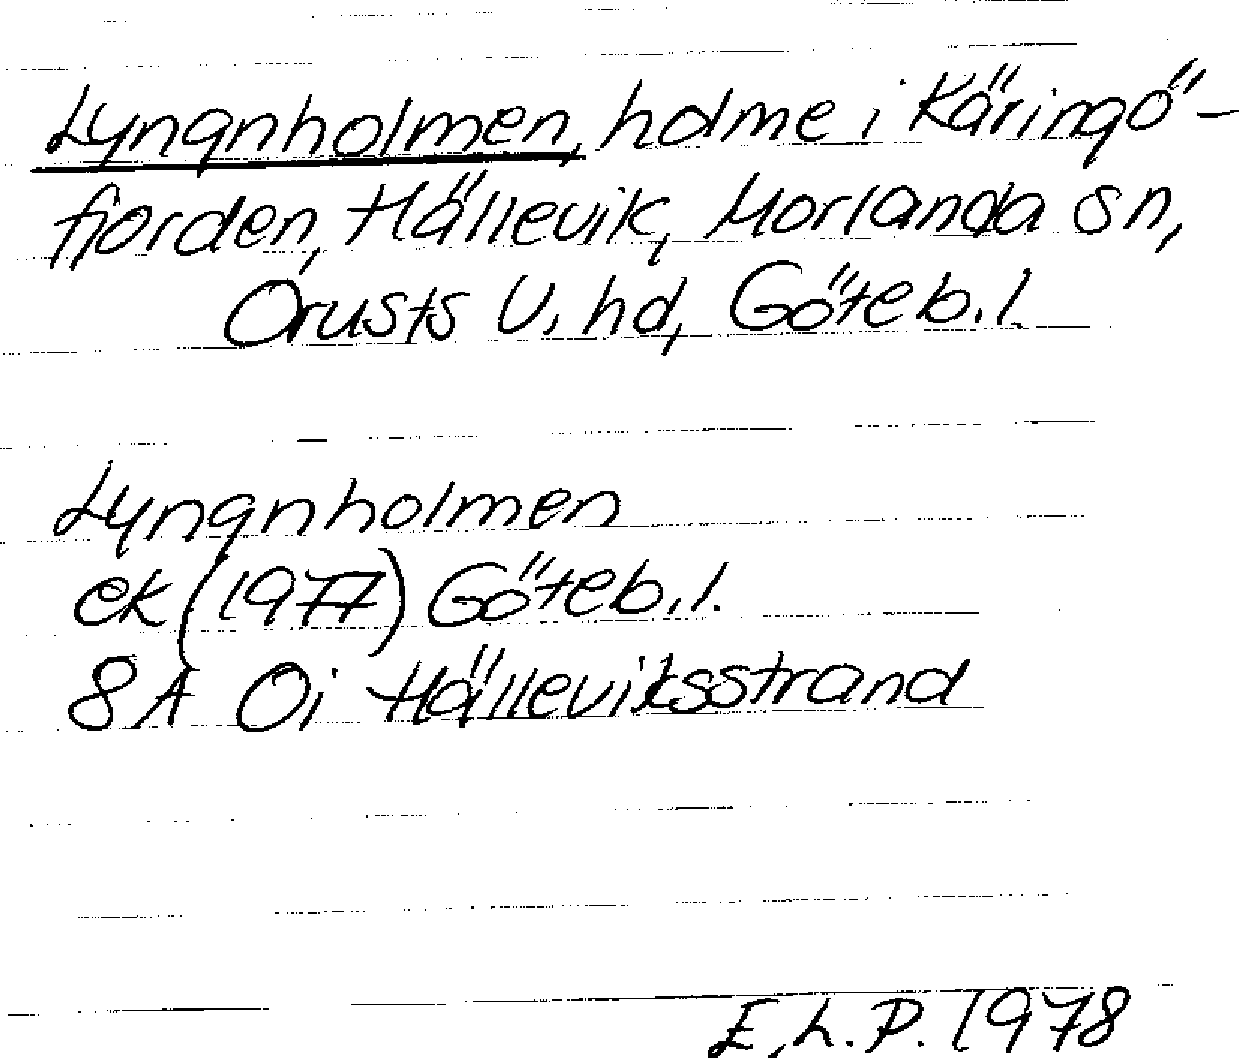 Lyngnholmen, holme i Käringö-
fjorden, Hällevik, Morlanda sn,
Orusts V. hd, Göteb. l.
Lyngnholmen
ek (1977) Göteb. l.
8A Oi Hälleviksstrand
E.L.P. 1978